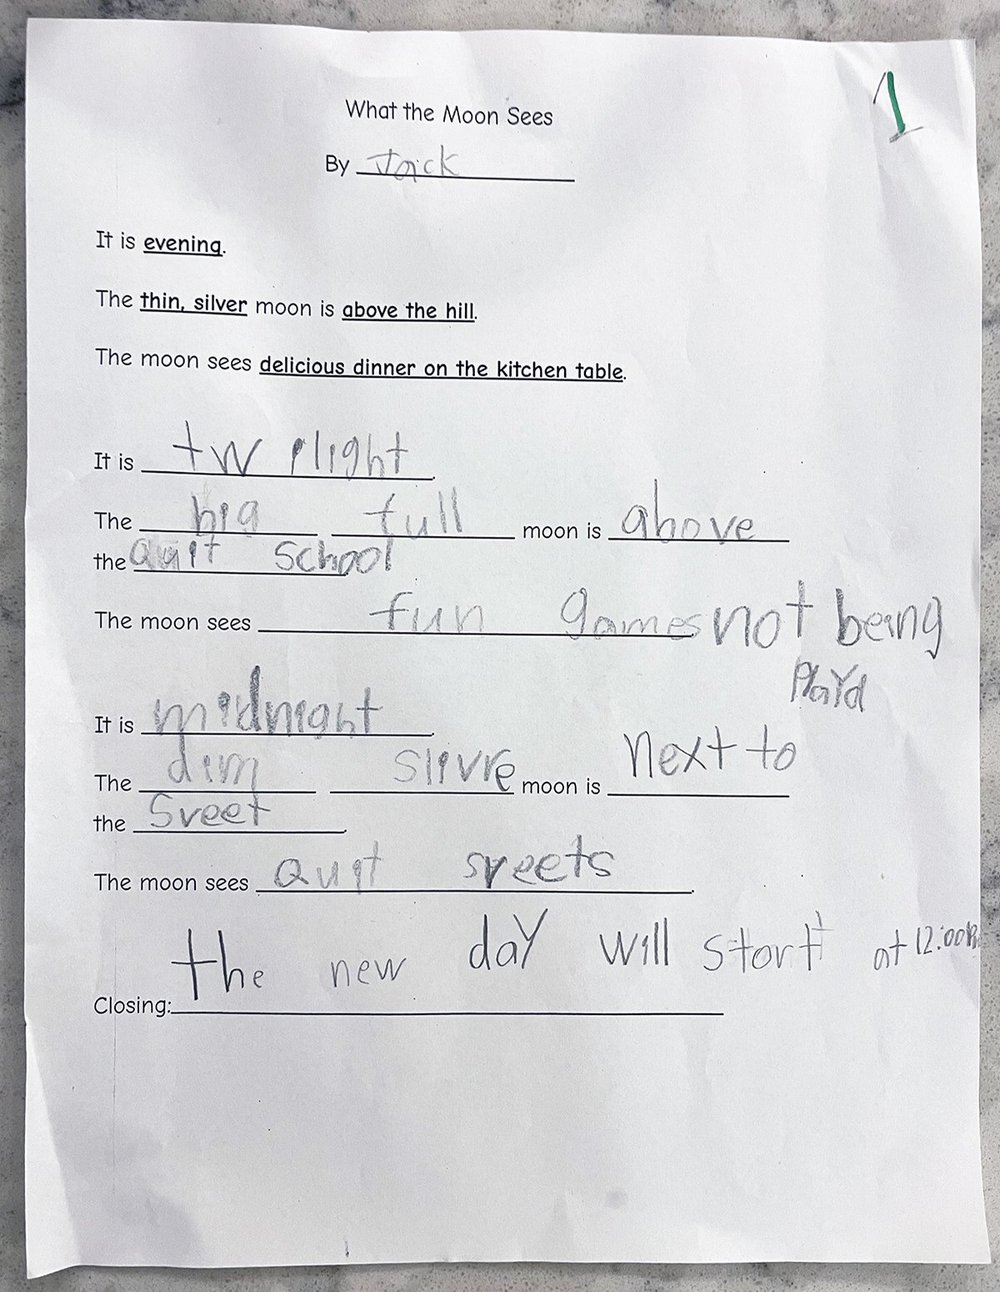 1
What the Moon Sees
By Jack
It is evening.
The thin, silver moon is above the hill.
The moon sees delicious dinner on the kitchen table.
It is twilight
The big full moon is above
the quit school
The moon sees fun games not being
playd
It is midnight
The dim slivre moon is next to
the sreet.
The moon sees quit sreets.
the new day will start at 12:00
Closing: